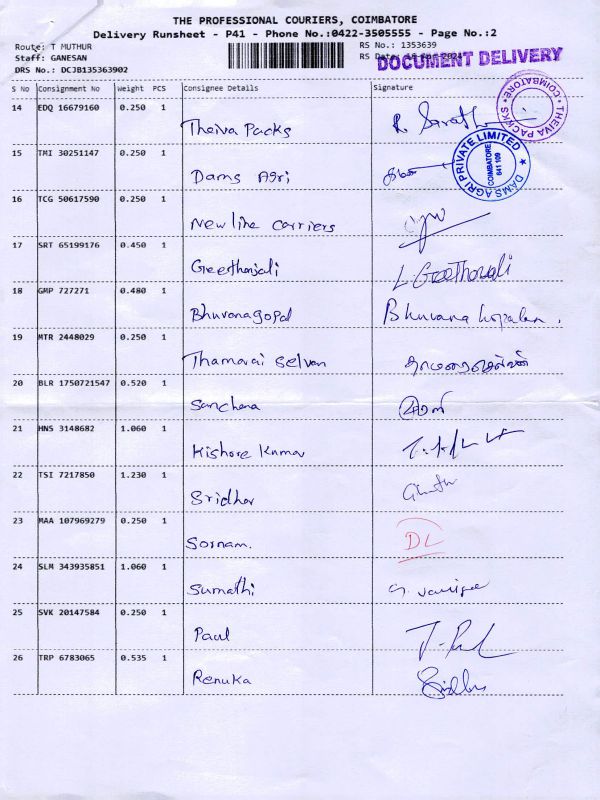 THE PROFESSIONAL COURIERS, COIMBATORE
Delivery Runsheet - P41 - Phone No.:0422-3505555 - Page No.:2
Route: T MUTHUR
RS No.: 1353639
Staff: GANESAN
RS
DOCUMENT DELIVERY
DRS No.: DCJB135363902
S No Consignment No Weight PCS Consignee Details Signature
14 EDQ 16679160 0.250 1
Theiva Packs
THEIVA PACKS
COIMBATORE
15 TMI 30251147 0.250 1
Dams Agri
DAMS AGRI PRIVATE LIMITED
COIMBATORE
641 109
16 TCG 50617590 0.250 1
New line carriers
17 SRT 65199176 0.450 1
Geerthanjali
18 GMP 727271 0.480 1
Bhuvanagopal Bhuvana Gopalan.
19 MTR 2448029 0.250 1
Thamarai Selvan தாமரைசெல்வன்
20 BLR 1750721547 0.520 1
Sanchana
21 HNS 3148682 1.060 1
Kishore Kumar
22 TSI 7217850 1.230 1
Sridhar
23 MAA 107969279 0.250 1
Sornam. DL
24 SLM 343935851 1.060 1
Sumathi
25 SVK 20147584 0.250 1
Paul
26 TRP 6783065 0.535 1
Renuka